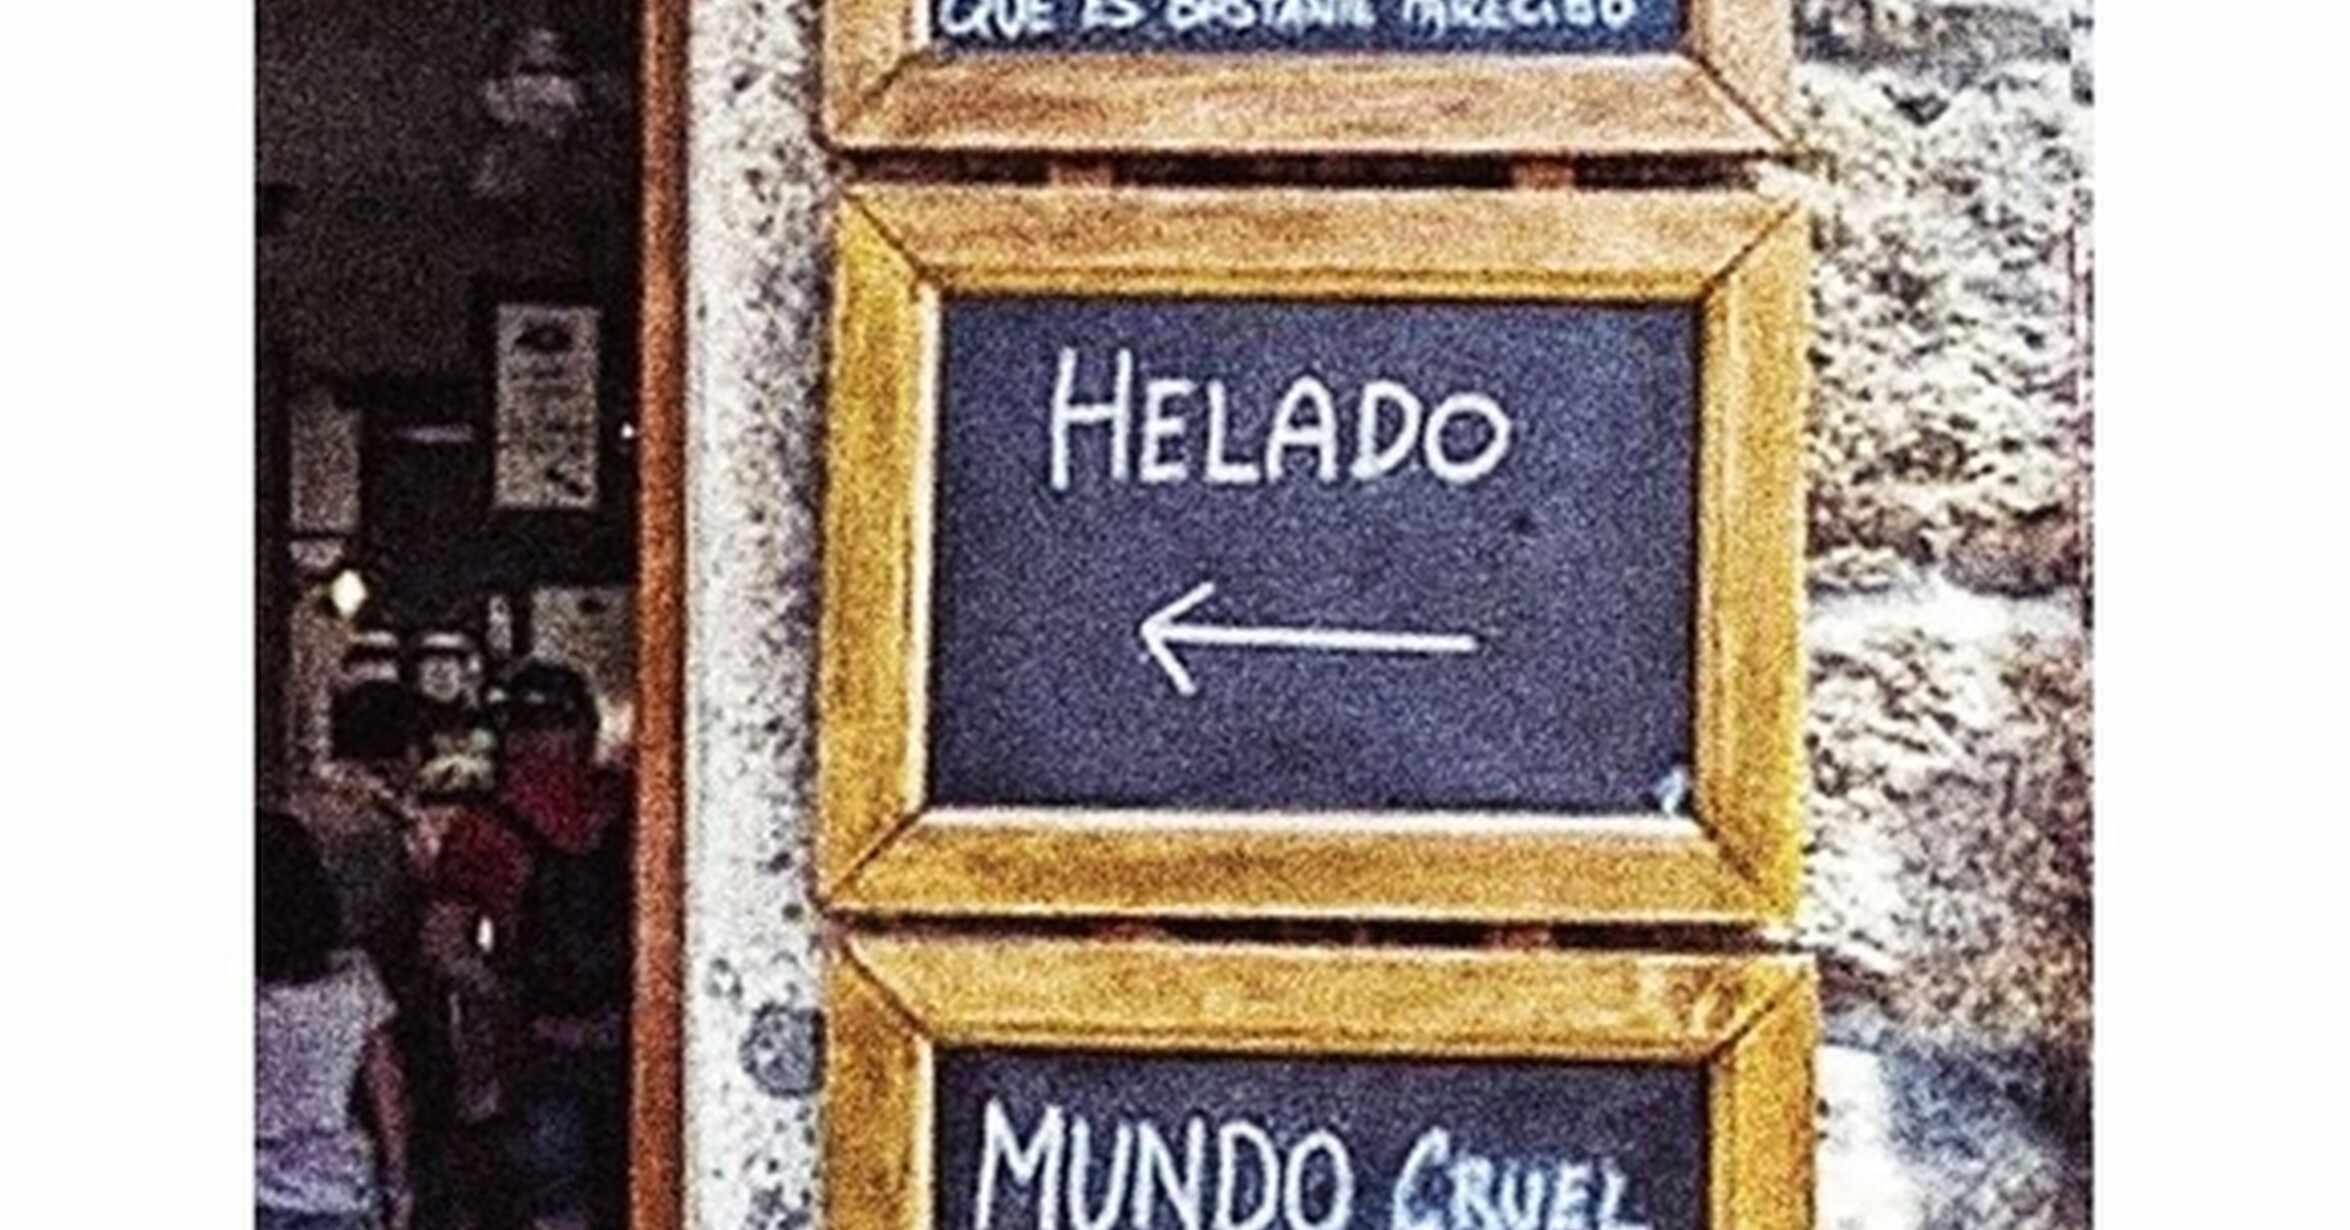 QUE ES BASTANTE PARECIDO
HELADO
MUNDO CRUEL